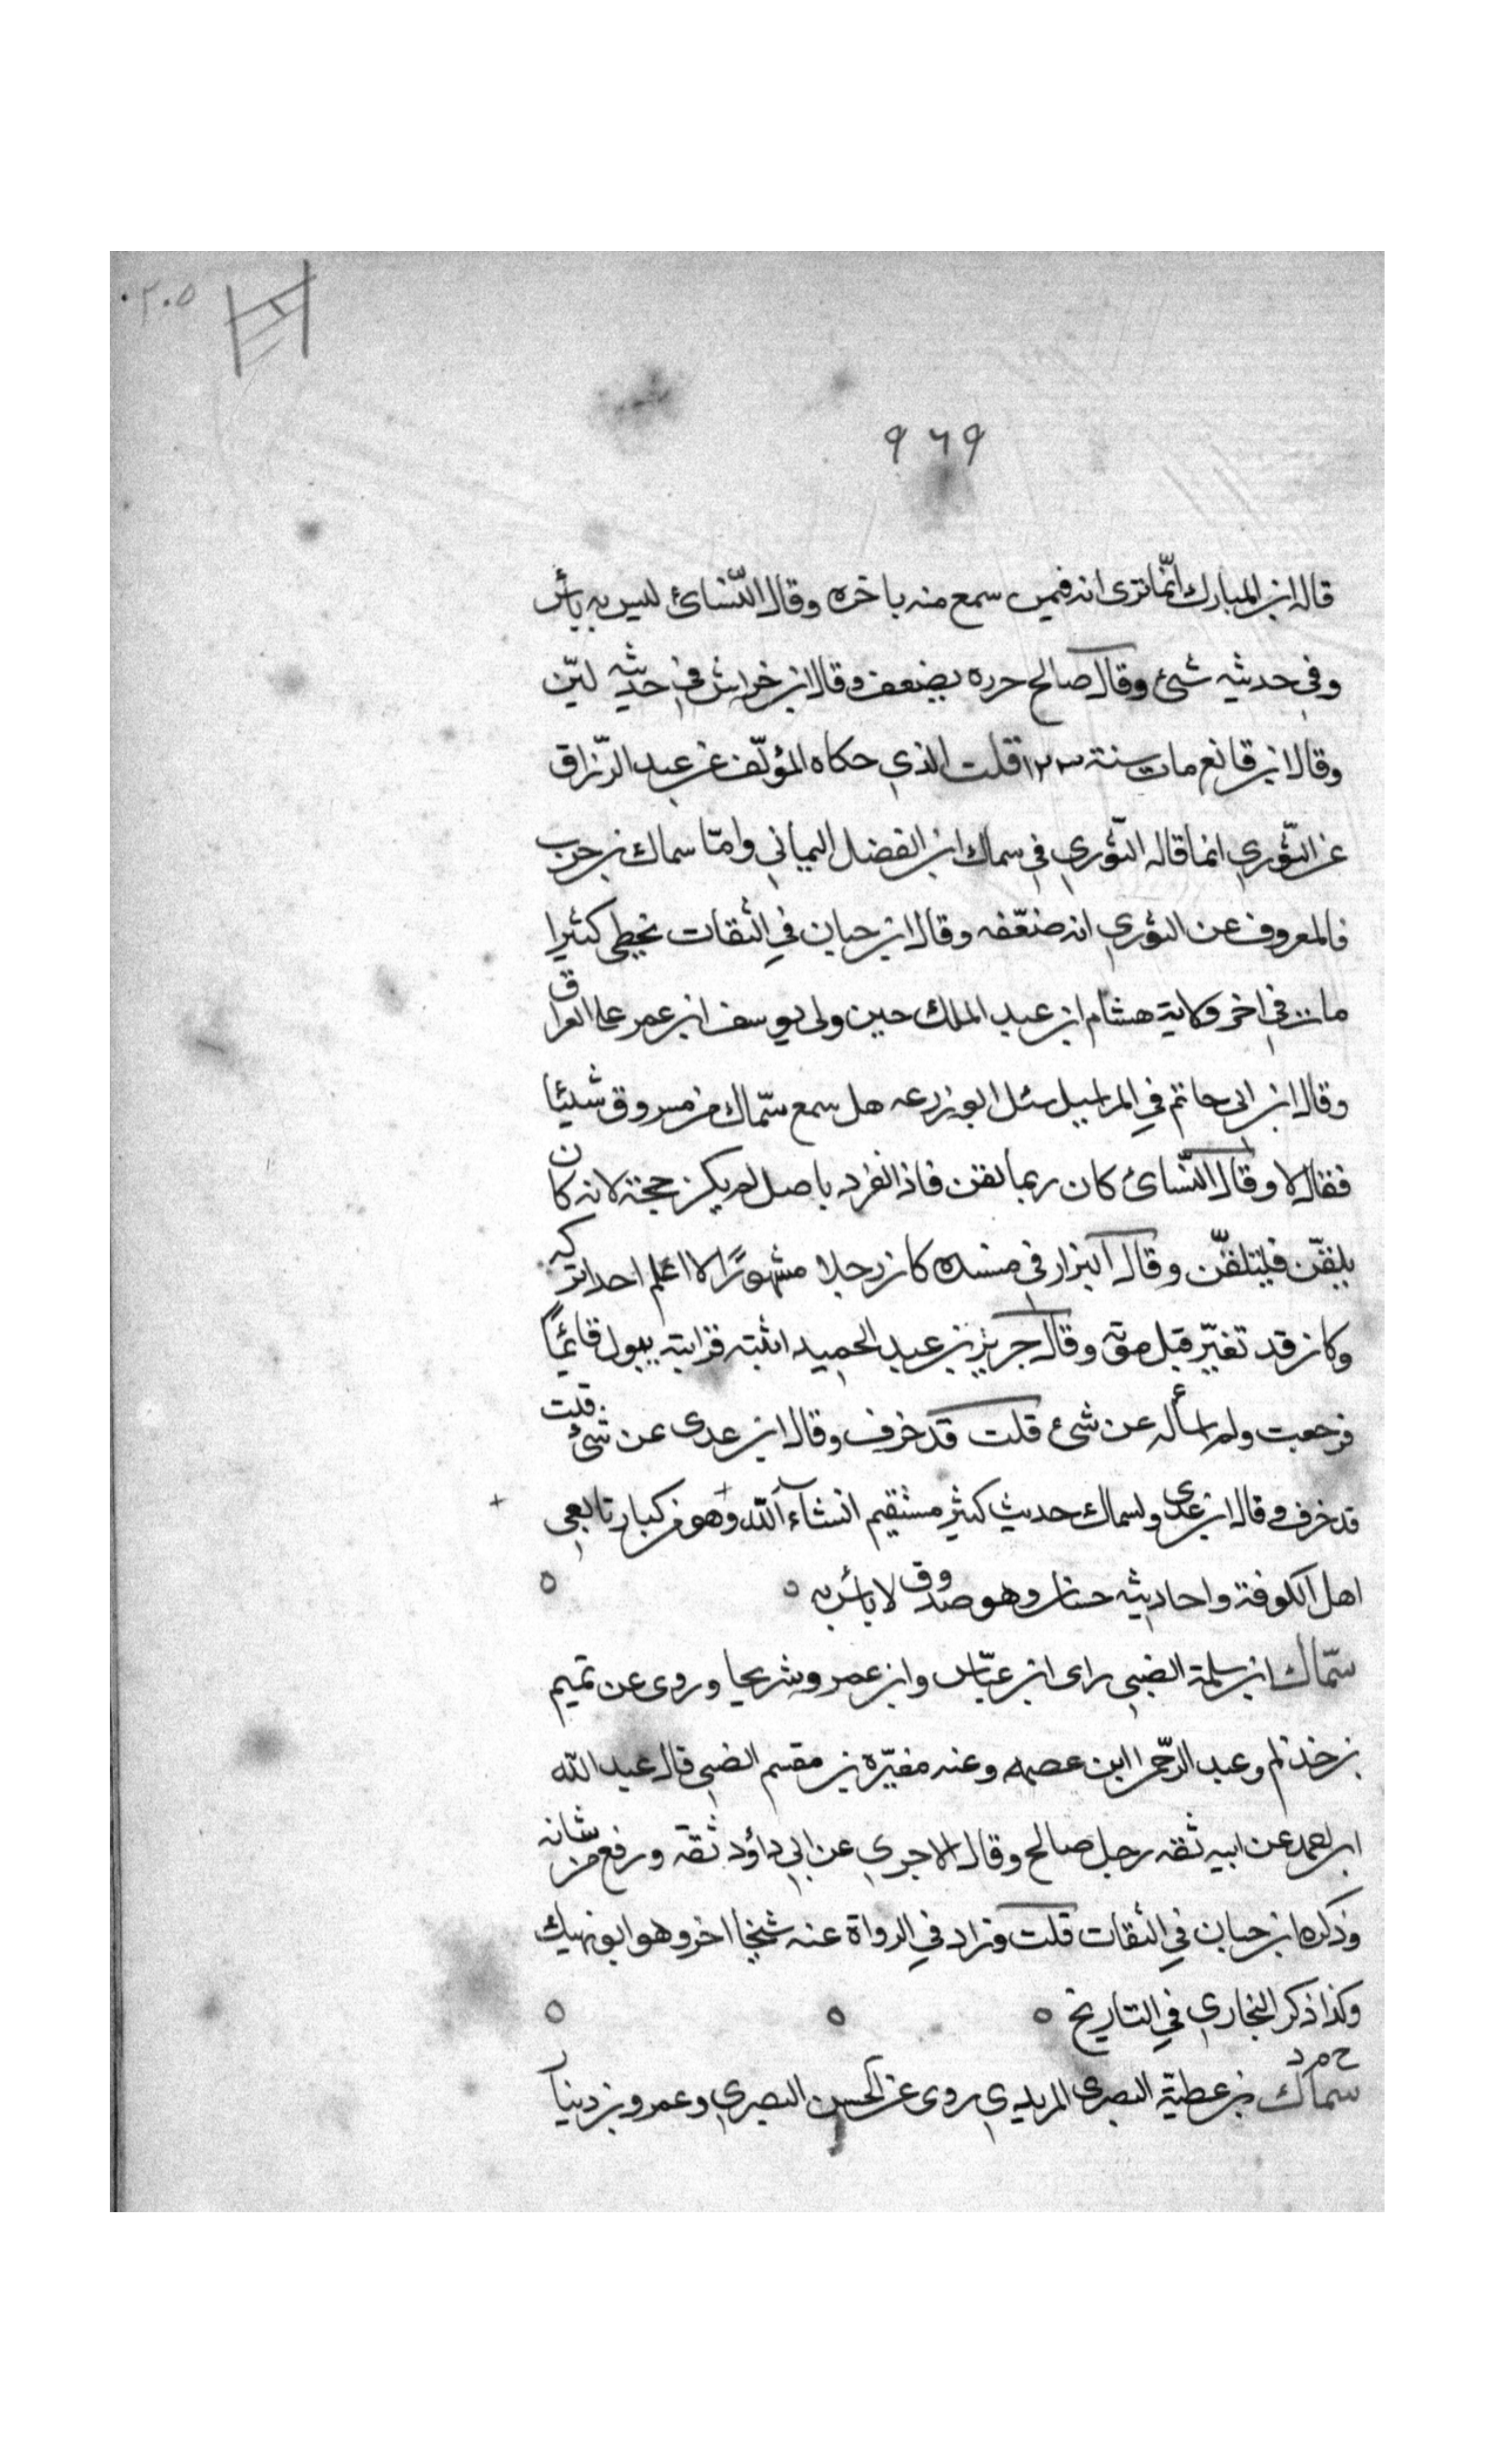 ٢٠٥
٩٦٩
قاله ابن المبارك انّما نرى انه فيمن سمع منه باخره وقال النّسائي ليس به بأس
وفي حديثه شئ وقال صالح جرره يضعف وقال ابن خراش في حديثه ليّن
وقال ابن قانع مات سنة ١٢٣ قلت الذي حكاه المؤلّف عن عبد الرّزاق
عن الثّوري انما قاله الثّوري في سماك ابن الفضل اليماني وامّا سماك بن حرب
فالمعروف عن الثوري انه ضعّفه وقال ابن حبان في الثقات يخطى كثيرا
مات في اخر ولاية هشام ابن عبد الملك حين ولى يوسف ابن عمر على العراق
وقال ابن ابى حاتم في المراسيل سئل ابو زرعه هل سمع سمّاك من مسروق شيئا
فقال لا وقال النّسائ كان ربما لقن فاذا انفرد باصل لم يكن حجة لانه كان
يلقّن فيتلقّن وقال البزار في مسنده كان رجلا مشهورًا لا اعلم احدا تركه
وكان قد تغيّر قبل موته وقال جرير بن عبد الحميد اتيته فرايته يبول قائمًا
فرجعت ولم اسأله عن شئ قلت قد خرف وقال ابن عدى عن شئ قلت
قد خرف وقال ابن عدى ولسماك حديث كثير مستقيم انشاء الله وهو من كبار تابعي
اهل الكوفة واحاديثه حسان وهو صدوق لا بأس به
سمّاك ابن سلمة الضبي راى ابن عبّاس وابن عمر وشريحا وروى عن تميم
بن خذلم وعبد الرّحمن ابن عصمه وعنه مغيّره بن مقسم الضبي قال عبد الله
ابن احمد عن ابيه ثقه رجل صالح وقال الاجري عن ابي داؤد ثقة ورفع من شانه
وذكره ابن حبان في الثقات قلت وزاد في الرواة عنه شيخا اخر وهو ابو نهيك
وكذا ذكر البخاري في التاريخ
خ م د
سماك بن عطيّة البصرى المربدي روى عن الحسن البصري وعمرو بن دينار